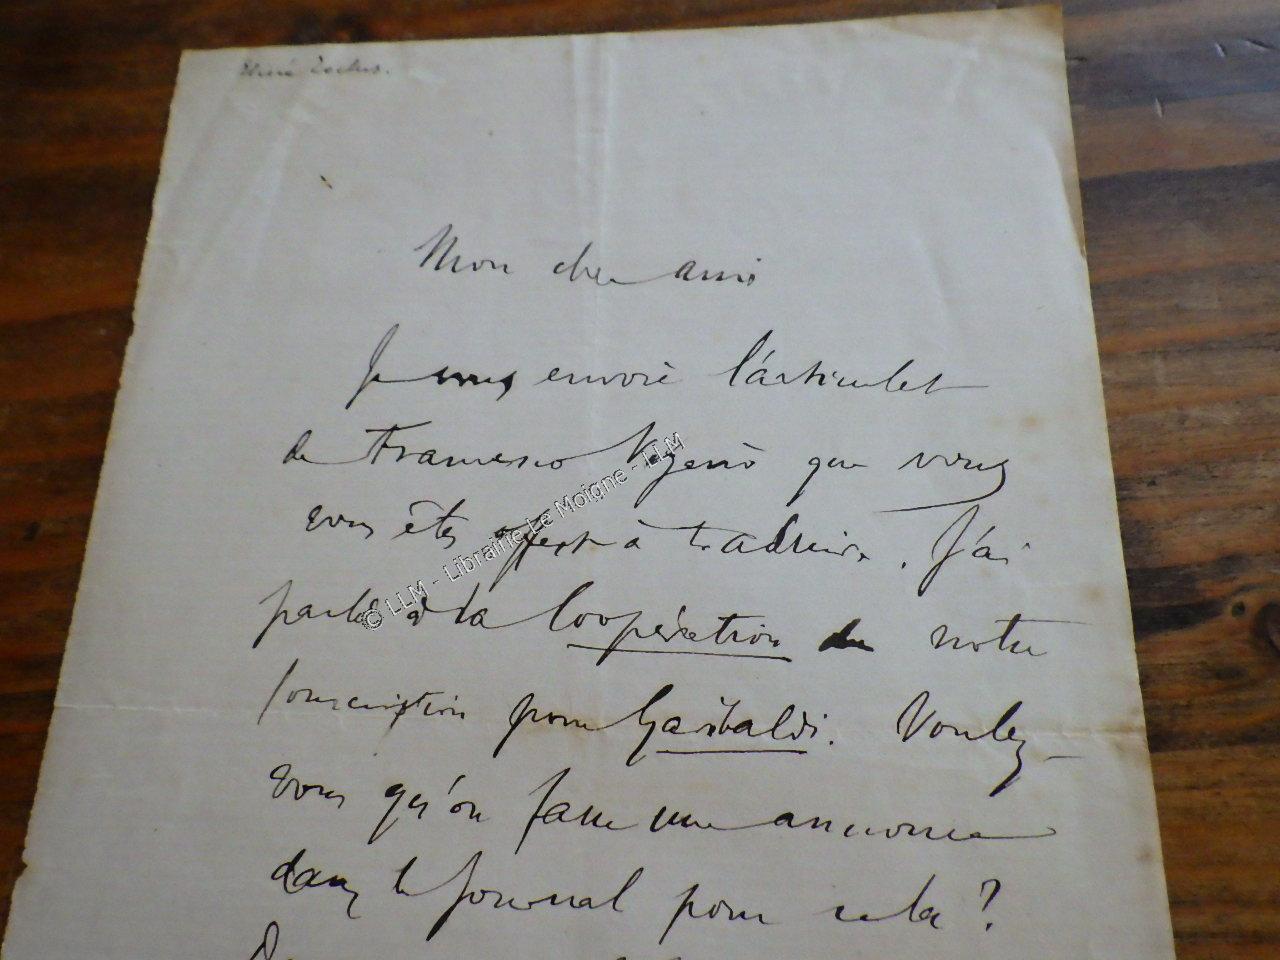 Elisé Reclus.
Mon cher ami
Je vous envoie l'articulet
de Francesco que vous
vous êtes offert à traduire. J'ai
parlé à la Coopération de notre
souscription pour Garibaldi. Voulez-
vous qu'on fasse une annonce
dans le journal pour cela ?
© LLM - Librairie Le Moigne - LLM